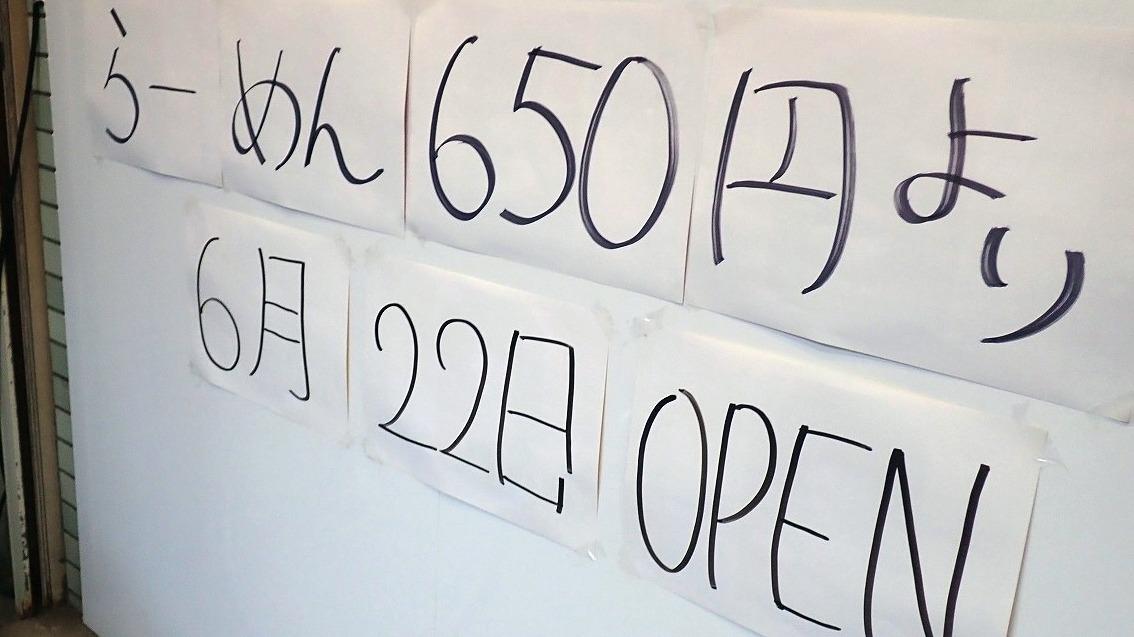 らーめん650円より
6月22日OPEN